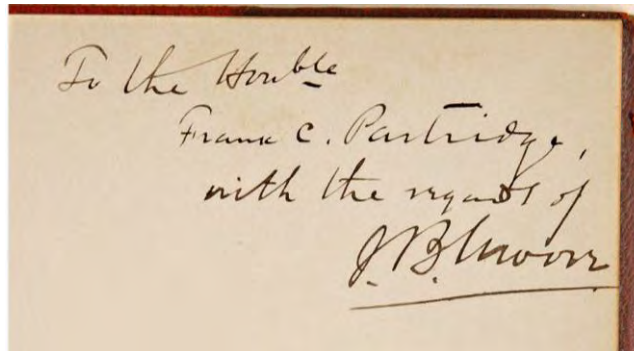 To the Honble
Frank C. Partridge,
with the regards of
J. B. Moore